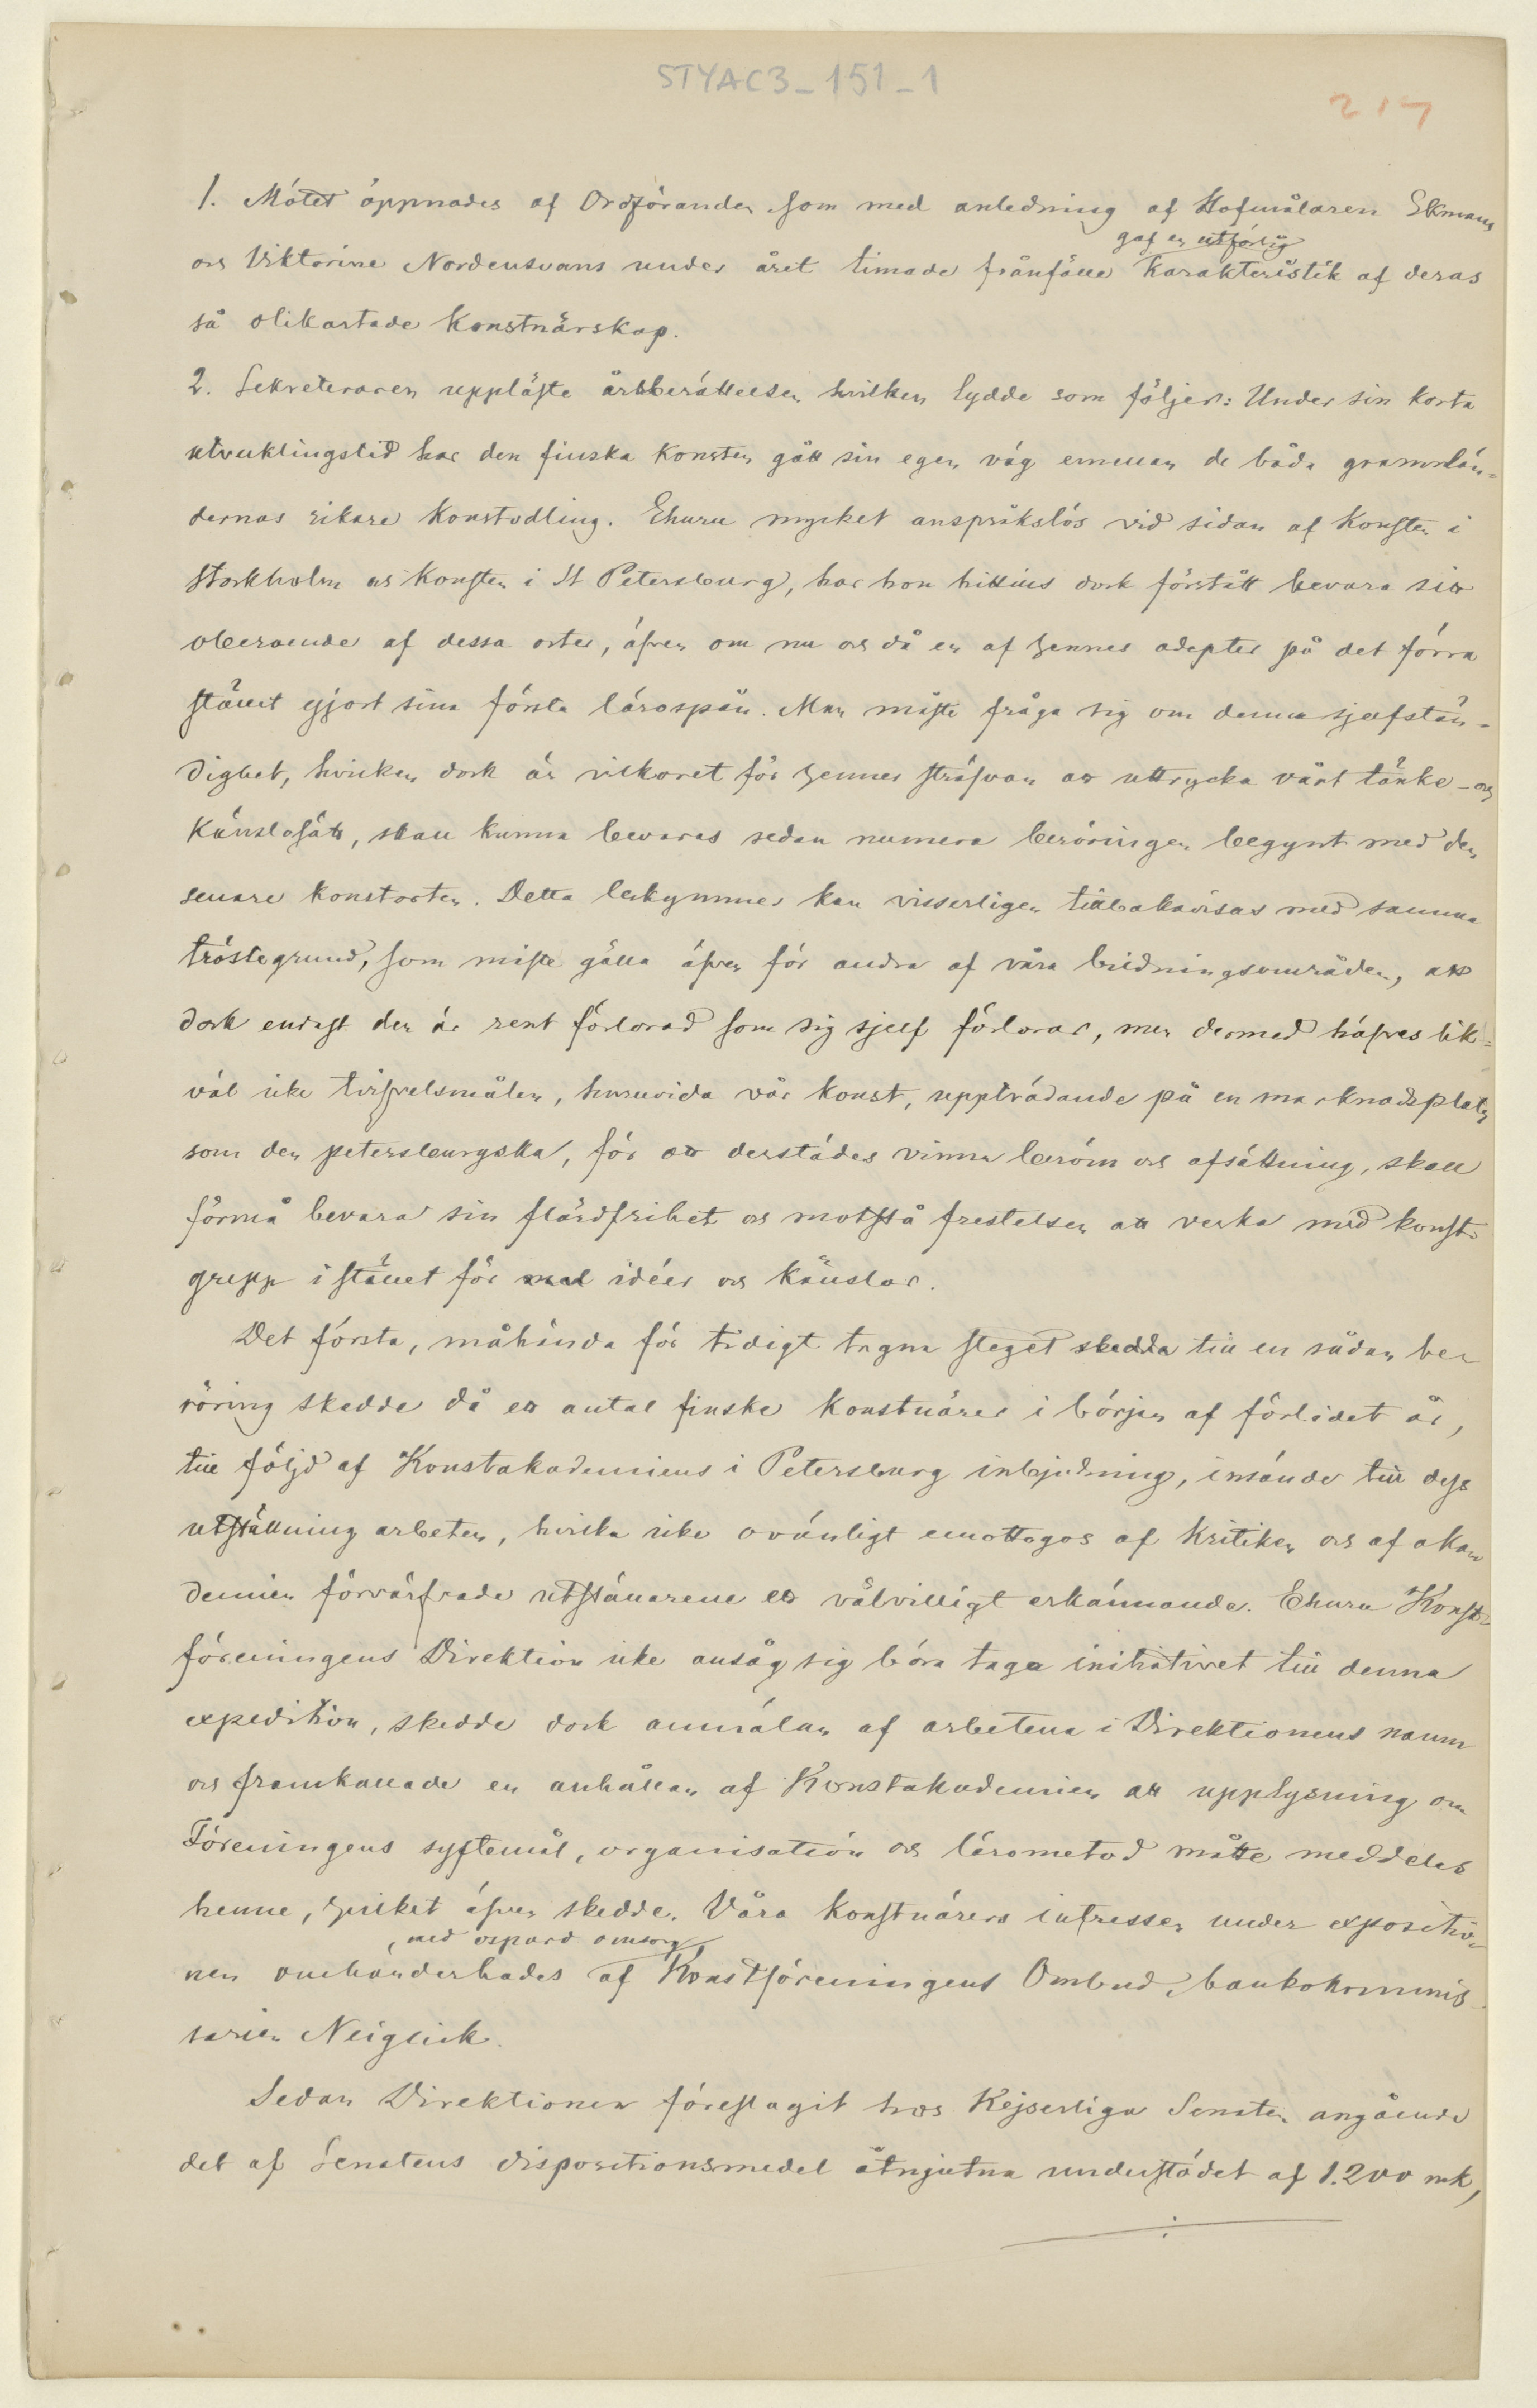 STYAC3_151_1
217
1. Mötet öppnades af Ordföranden som med anledning af Hofmålaren Ekmans
gaf en utförlig
och Viktorine Nordensvans under året timade frånfälle karakteristik af deras
så olikartade konstnärskap.
2. Sekreteraren uppläste årsberättelsen hvilken lydde som följer: Under sin korta
utvecklingstid har den finska konsten gått sin egen väg emellan de båda grannlän=
dernas rikare konstodling. Ehuru mycket anspråkslös vid sidan af konsten i
Stockholm och konsten i St Petersburg, har hon hittills dock förstått bevara sitt
oberoende af dessa orter, äfven om nu och då en af hennes adepter på det förra
stället gjort sina första lärospån. Man måste fråga sig om denna sjelfstän=
dighet, hvilken dock är vilkoret för hennes sträfvan att uttrycka vårt tänke- och
känslosätt, skall kunna bevaras sedan numera beröringen begynt med den
senare konstorten. Detta bekymmer kan visserligen tillbakavisas med samma
tröstegrund, som måste gälla äfven för andra af våra bildningsområden, att
dock endast den är rent förlorad som sig sjelf förlorar, men dermed häfves lik=
väl icke tvifvelsmålen, huruvida vår konst, uppträdande på en marknadsplats
som den petersburgska, för att derstädes vinna beröm och afsättning, skall
förmå bevara sin flärdfrihet och motstå frestelsen att verka med konst=
grepp i stället för med idéer och känslor.
Det första, måhända för tidigt tagna steget skedda till en sådan be=
röring skedde då ett antal finske konstnärer i början af förlidet år,
till följd af Konstakademiens i Petersburg inbjudning, insände till dess
utställning arbeten, hvilka icke ovänligt emottogos af kritiken och af aka=
demien förvärfvade utställarene ett välvilligt erkännande. Ehuru Konst=
föreningens Direktion icke ansåg sig böra taga initiativet till denna
expedition, skedde dock anmälan af arbetena i Direktionens namn
och framkallade en anhållan af Konstakademien att upplysning om
Föreningens syftemål, organisation och lärometod måtte meddelas
henne, hvilket äfven skedde. Våra konstnärers intressen under expositio=
med ospard omsorg
nen omhänderhades af Konstföreningens Ombud, bankokommis=
sarien Neiglick.
Sedan Direktionen föreslagit hos Kejserliga Senaten angående
det af Senatens dispositionsmedel åtnjutna understödet af 1.200 mk,